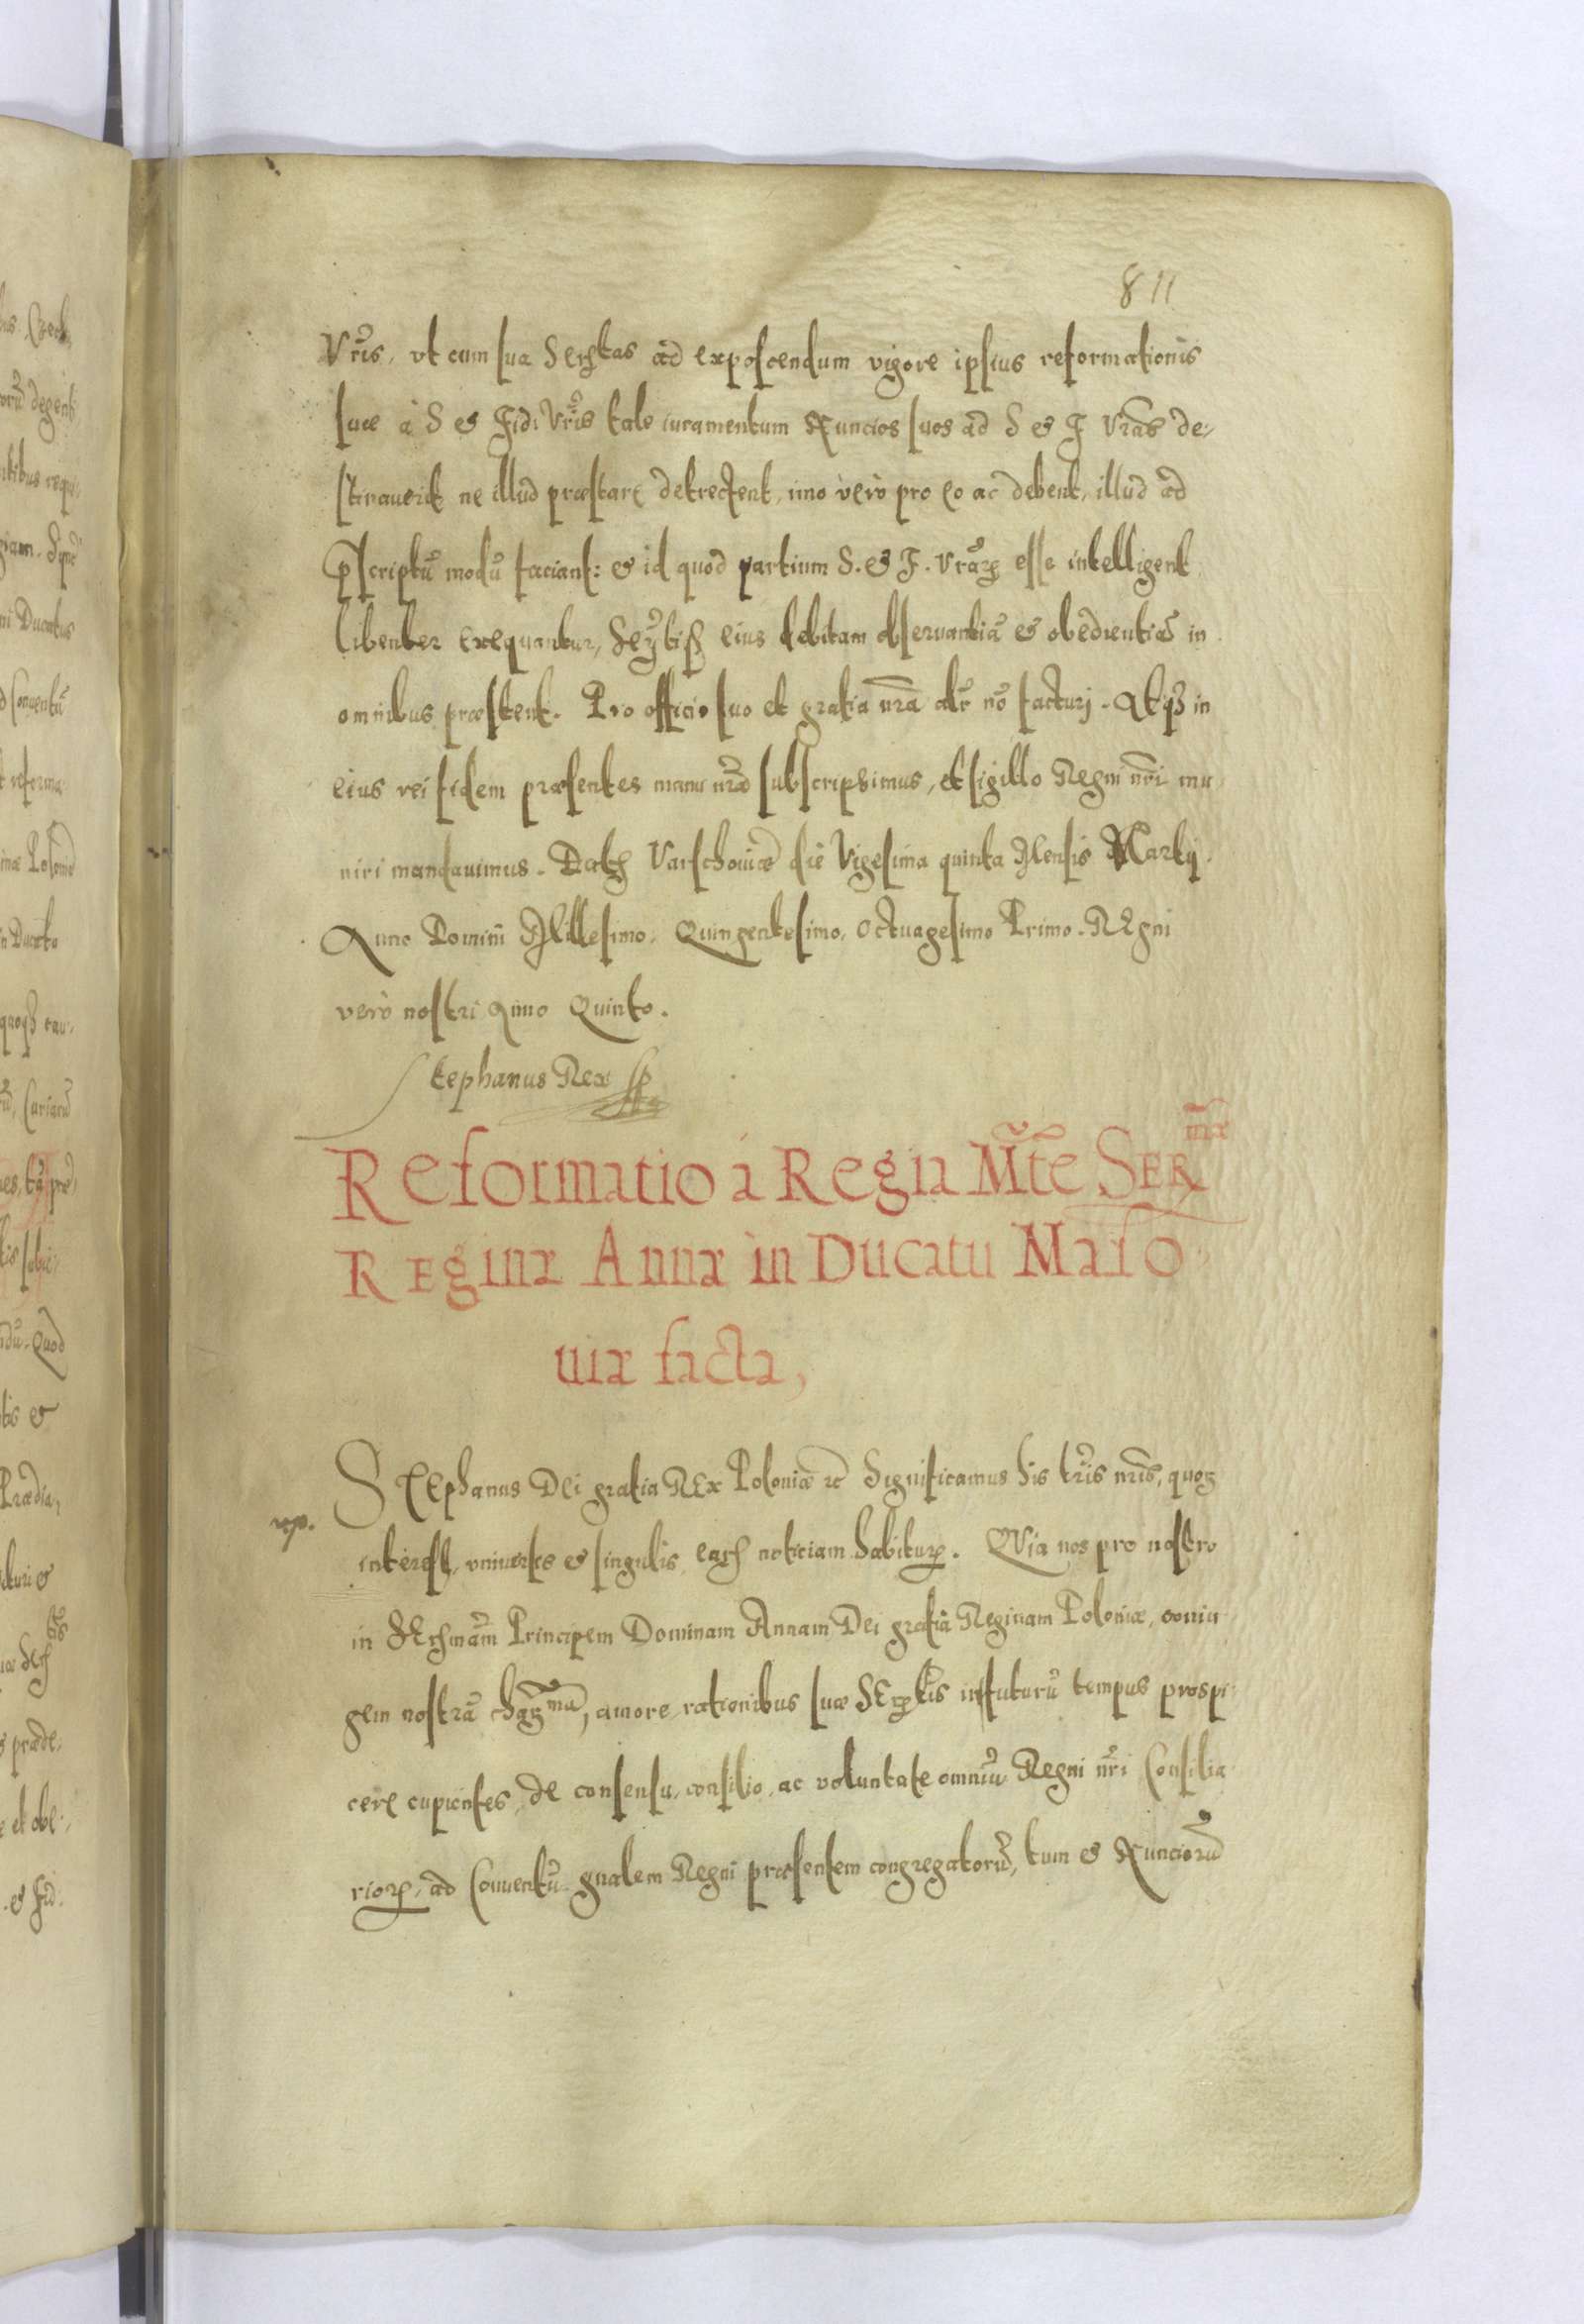 811
Vr̃is, vt cum sua Serẽtas ad exposcendum vigore ipsius reformationis
suæ à S et Fid: Vr̃is tale iuramentum Nuncios suos ad S et F Vras̃ de-
stinauerit, ne illud præstare detrectent, imo vero pro eo ac debent, illud ad
p̃scriptũ modũ faciant: et id quod partium S. et F. Vrarꝝ esse intelligent
libenter exequantur, eius debitam obseruantiã et obedientiã in
omnibus præstent. Pro officio suo et gratia nr̃a alr̃ nõ facturj. Atqꝫ in
eius rei fidem præsentes manu nr̃a subscripsimus, et sigillo Regni nr̃i mu
niri mandauimus. Datꝫ Varschouiæ die Vigesima quinta Mensis Martij.
Anno Domini Millesimo, Quingentesimo, Octuagesimo Primo. Regni
vero nostri Anno Quinto.
Stephanus Rex
Reformatio á Regia Mt̃e Serma
Reginæ Annæ in Ducatu Maso
uiæ facta,
Stephanus Dei gratia Rex Poloniæ rc̃ Significamus his lr̃is nr̃is, quoꝝ
interest, vniuersis et singulis earꝫ noticiam habiturꝝ. Quia nos pro nostro
in Serꝫmãm Principem Dominam Annam Dei gratia Reginam Poloniæ, coniu
gem nostrã charꝫmã, amore, rationibus suæ Serẽtis in futurũ tempus prospi
cere cupientes, de consensu, consilio, ac voluntate omniũ Regni nr̃i Consilia
riorꝝ, ad Conuentũ gñalem Regni præsentem congregatorũ, tum et Nunciorũ